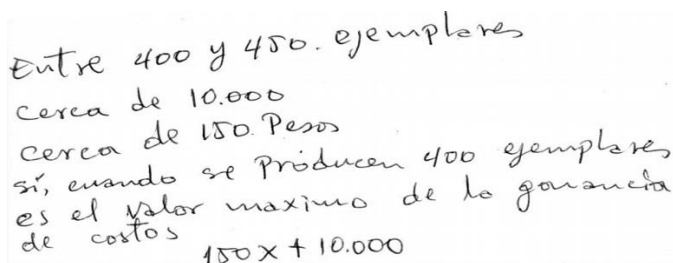 Entre 400 y 450. ejemplares
cerca de 10.000
cerca de 150 Pesos
sí, cuando se Producen 400 ejemplares
es el valor maximo de la ganancia
de costos
150x + 10.000